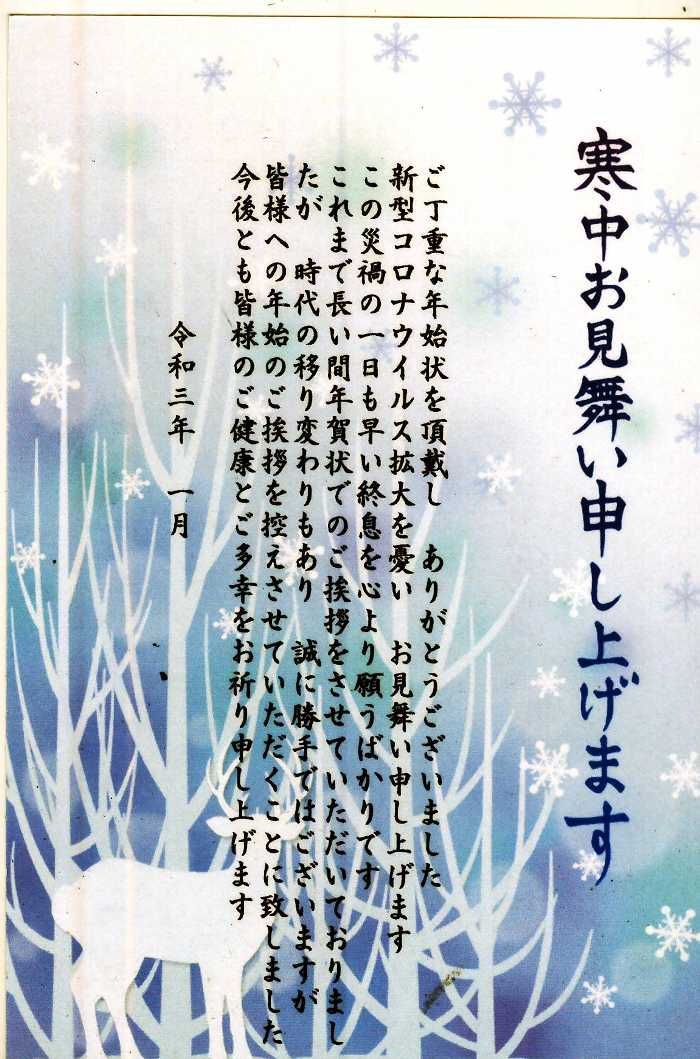 寒中お見舞い申し上げます
ご丁重な年始状を頂戴し　ありがとうございました
新型コロナウイルス拡大を憂い　お見舞い申し上げます
この災禍の一日も早い終息を心より願うばかりです
これまで長い間年賀状でのご挨拶をさせていただいておりまし
たが　時代の移り変わりもあり　誠に勝手ではございますが
皆様への年始のご挨拶を控えさせていただくことに致しました
今後とも皆様のご健康とご多幸をお祈り申し上げます
令和三年　一月